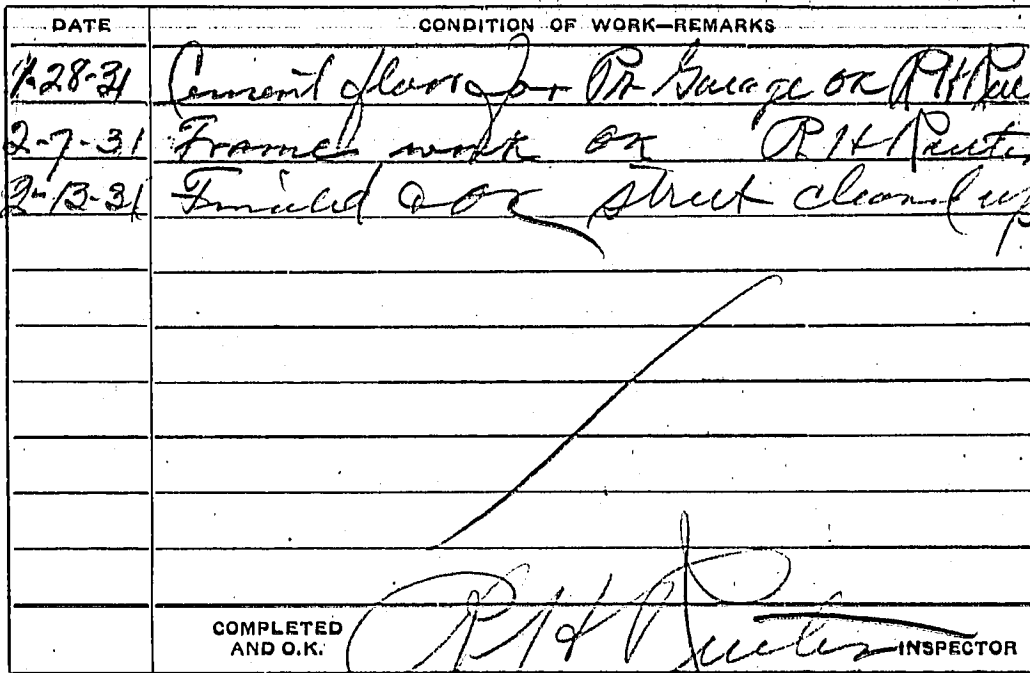 DATE CONDITION OF WORK—REMARKS
1-28-31 Cement floor for Pr Garage OK R H
2-7-31 Frame work OK R H
2-13-31 OK street cleaned up
COMPLETED
AND O.K. R H INSPECTOR